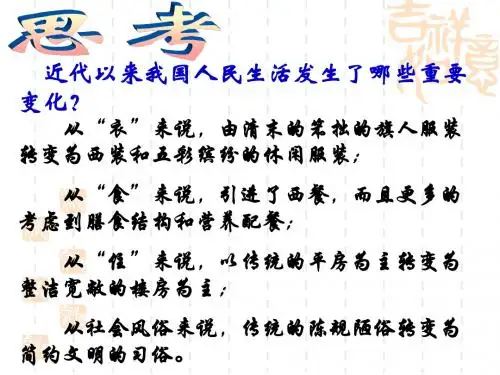 思考
近代以来我国人民生活发生了哪些重要
变化？
从“衣”来说，由清末的笨拙的旗人服装
转变为西装和五彩缤纷的休闲服装；
从“食”来说，引进了西餐，而且更多的
考虑到膳食结构和营养配餐；
从“住”来说，以传统的平房为主转变为
整洁宽敞的楼房为主；
从社会风俗来说，传统的陈规陋俗转变为
简约文明的习俗。